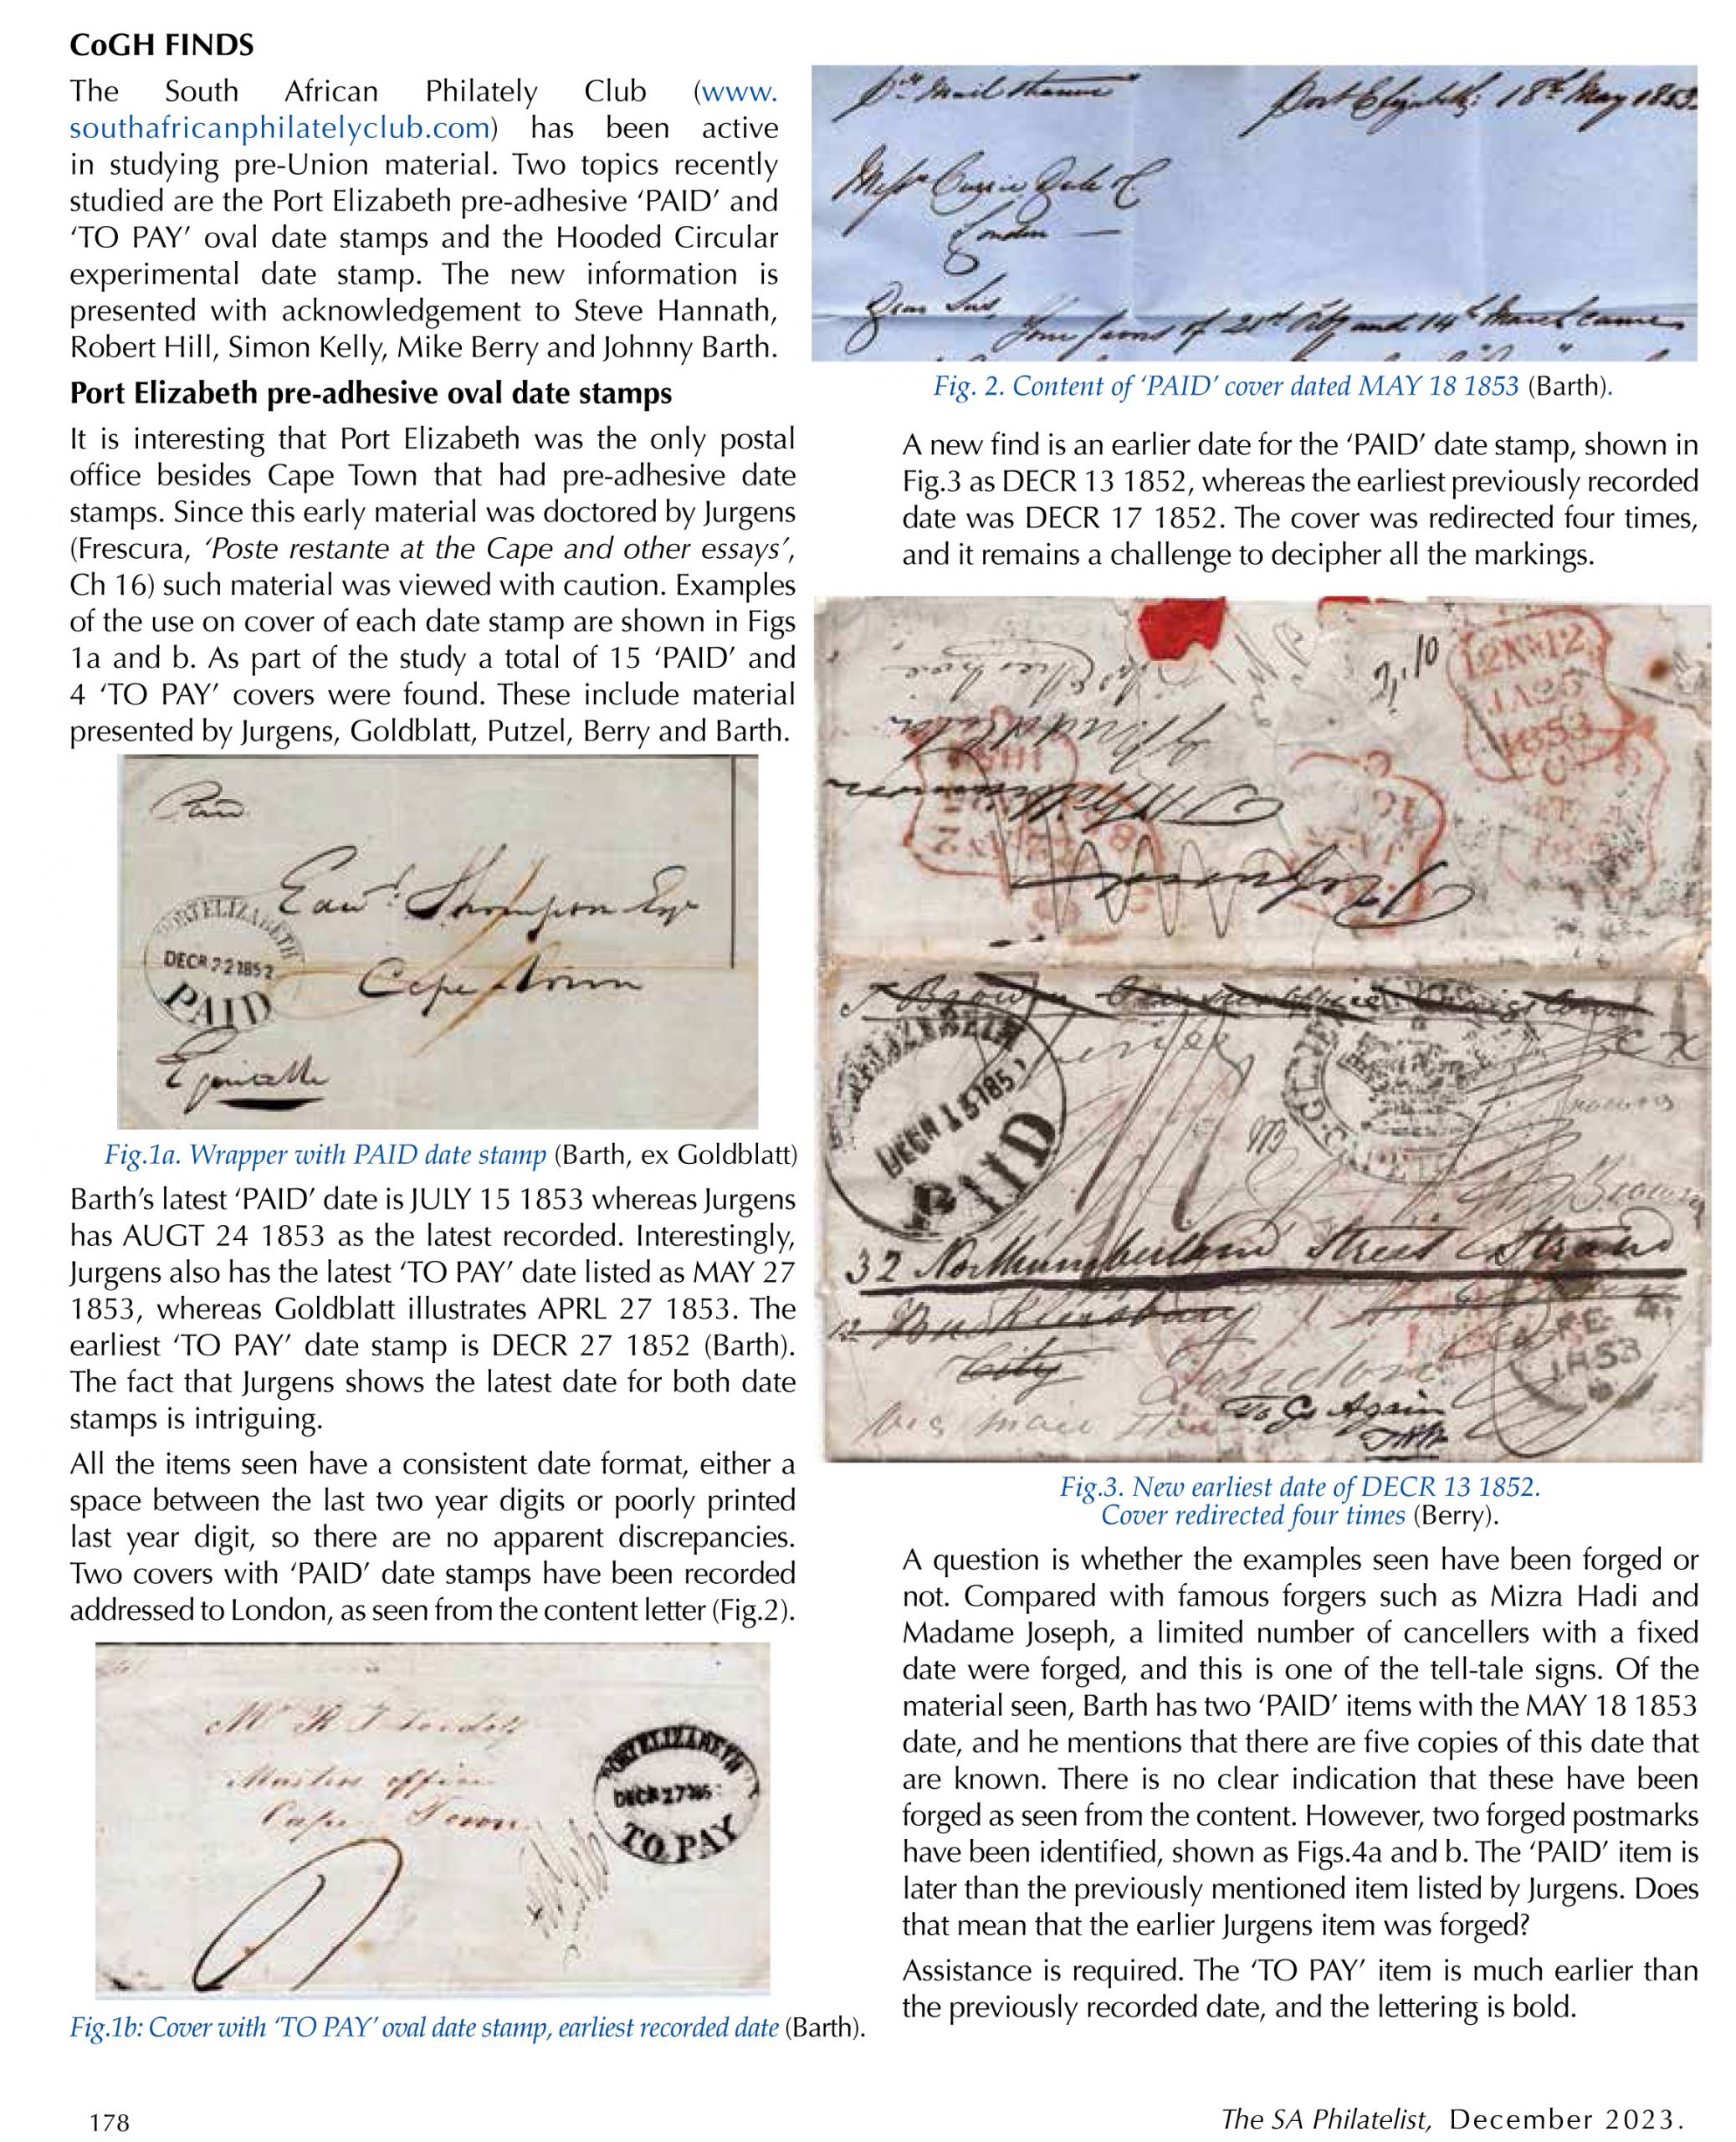 CoGH FINDS
The South African Philately Club (www.
southafricanphilatelyclub.com) has been active
in studying pre-Union material. Two topics recently
studied are the Port Elizabeth pre-adhesive ‘PAID’ and
‘TO PAY’ oval date stamps and the Hooded Circular
experimental date stamp. The new information is
presented with acknowledgement to Steve Hannath,
Robert Hill, Simon Kelly, Mike Berry and Johnny Barth.
Port Elizabeth pre-adhesive oval date stamps
It is interesting that Port Elizabeth was the only postal
office besides Cape Town that had pre-adhesive date
stamps. Since this early material was doctored by Jurgens
(Frescura, ‘Poste restante at the Cape and other essays’,
Ch 16) such material was viewed with caution. Examples
of the use on cover of each date stamp are shown in Figs
1a and b. As part of the study a total of 15 ‘PAID’ and
4 ‘TO PAY’ covers were found. These include material
presented by Jurgens, Goldblatt, Putzel, Berry and Barth.
Paid
Edwd. Thompson Esqr
PORT ELIZABETH
DECR 22 1852
PAID
Cape Town
Fig.1a. Wrapper with PAID date stamp (Barth, ex Goldblatt)
Barth’s latest ‘PAID’ date is JULY 15 1853 whereas Jurgens
has AUGT 24 1853 as the latest recorded. Interestingly,
Jurgens also has the latest ‘TO PAY’ date listed as MAY 27
1853, whereas Goldblatt illustrates APRL 27 1853. The
earliest ‘TO PAY’ date stamp is DECR 27 1852 (Barth).
The fact that Jurgens shows the latest date for both date
stamps is intriguing.
All the items seen have a consistent date format, either a
space between the last two year digits or poorly printed
last year digit, so there are no apparent discrepancies.
Two covers with ‘PAID’ date stamps have been recorded
addressed to London, as seen from the content letter (Fig.2).
Masters office
Cape Town
PORT ELIZABETH
DECR 27 185
TO PAY
Fig.1b: Cover with ‘TO PAY’ oval date stamp, earliest recorded date (Barth).
Port Elizabeth 18th May 1853
London
Dear Sirs
Your favors of 21st Feby and 14th March came
Fig. 2. Content of ‘PAID’ cover dated MAY 18 1853 (Barth).
A new find is an earlier date for the ‘PAID’ date stamp, shown in
Fig.3 as DECR 13 1852, whereas the earliest previously recorded
date was DECR 17 1852. The cover was redirected four times,
and it remains a challenge to decipher all the markings.
12NN12
JA25
1853
PAID
32 Northumberland Street Strand
City
London
To Go Again
1853
Fig.3. New earliest date of DECR 13 1852.
Cover redirected four times (Berry).
A question is whether the examples seen have been forged or
not. Compared with famous forgers such as Mizra Hadi and
Madame Joseph, a limited number of cancellers with a fixed
date were forged, and this is one of the tell-tale signs. Of the
material seen, Barth has two ‘PAID’ items with the MAY 18 1853
date, and he mentions that there are five copies of this date that
are known. There is no clear indication that these have been
forged as seen from the content. However, two forged postmarks
have been identified, shown as Figs.4a and b. The ‘PAID’ item is
later than the previously mentioned item listed by Jurgens. Does
that mean that the earlier Jurgens item was forged?
Assistance is required. The ‘TO PAY’ item is much earlier than
the previously recorded date, and the lettering is bold.
178
The SA Philatelist, December 2023.